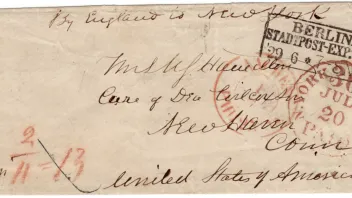 By England to New York
BERLIN
STADTPOST-EXP.
29 6
Mrs
Hamilton
Care of
New Haven
Conn
United States of America
NEW YORK
JUL
20
PAID
2
11 = 13